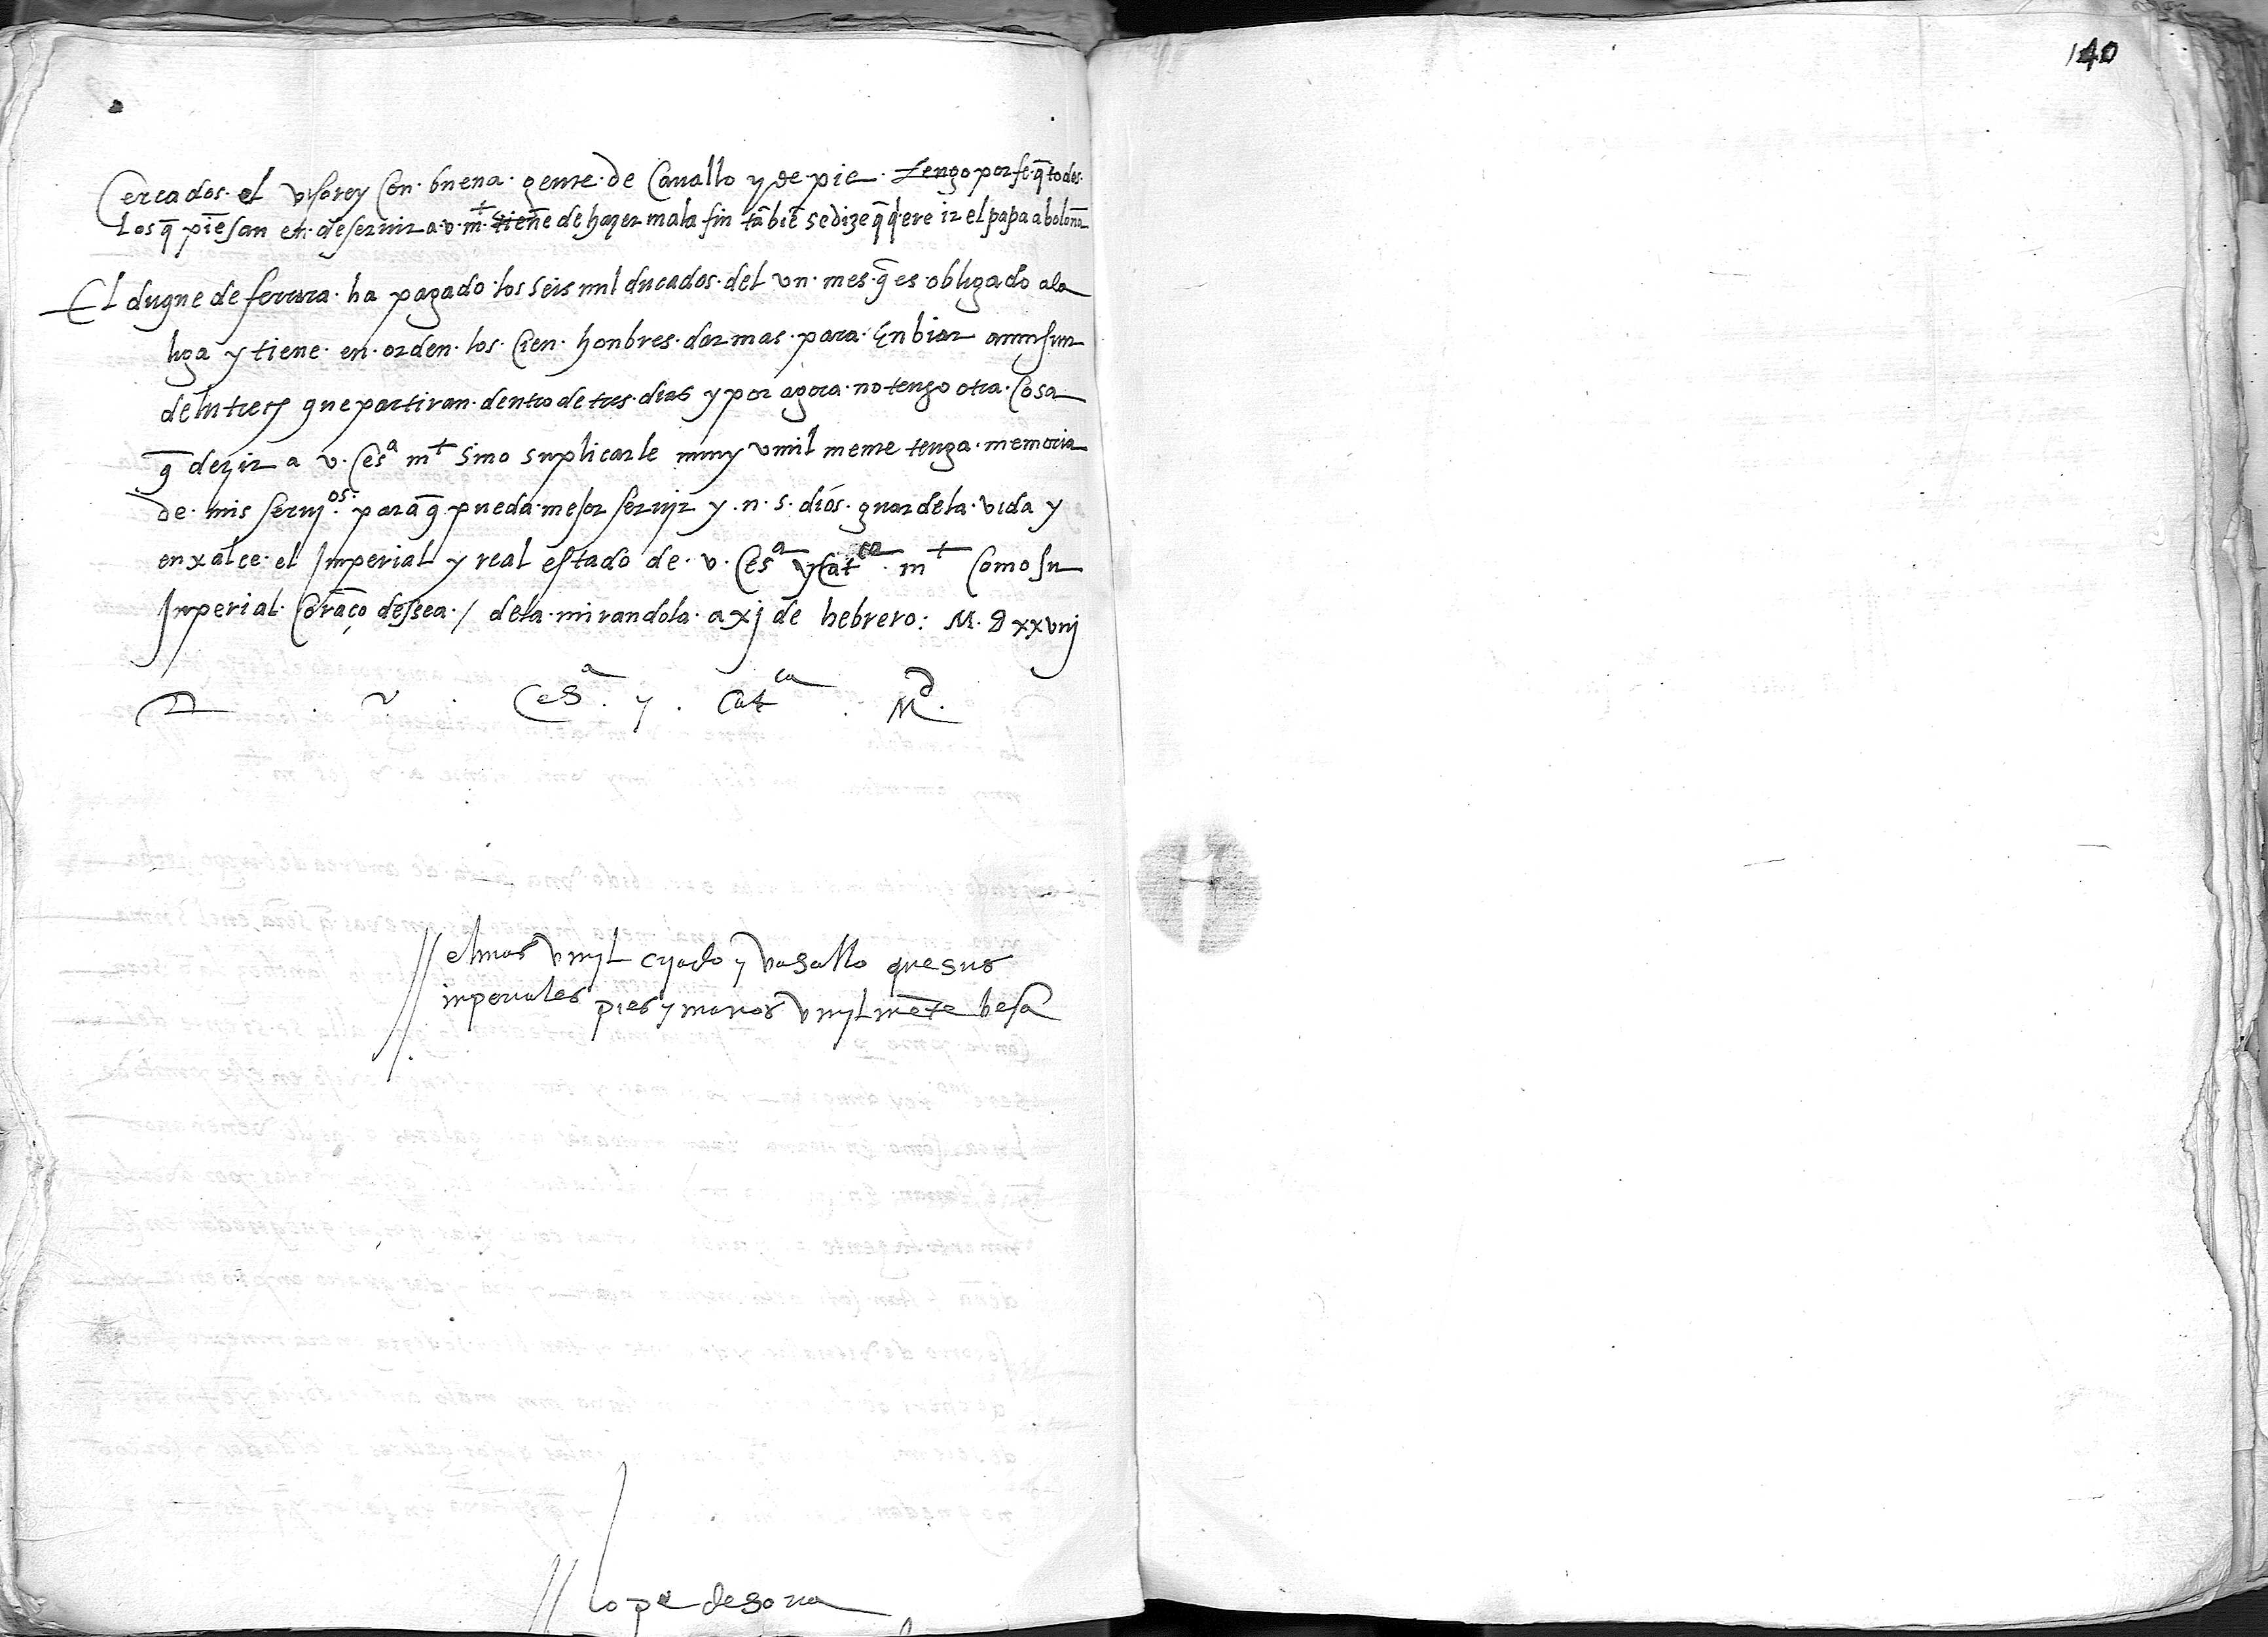 140
Cercados. el visorey Con. buena. gente. de Cavallo y de pie. Tengo por fe. q̄ todos.
Los q̄ piēsan en. deservir a. v. m.t tienē de hazer mala fin tābiē se dize q̄ q̄ere ir el papa a boloña
El duque de ferrara. ha pagado. los seis mil ducados. del un. mes. q̄ es. obligado ala
liga y tiene. en. orden. los. Cien. honbres. darmas. para. Enbiar a
de lutrech que partiran. dentro de tres. dias y por agora. no tengo otra. Cosa
q̄ dezir a v. Cesa mt sino suplicarle muy umil mente tenga. memoria
de. mis servios. para q̄ pueda. mejor servir y. n. s. diós. guarde la. vida y
enxalce. el Imperial y real estado de. v. Cesa y Catca. mt Como su
Imperial. Coraçō dessea. / dela. mirandola. a xj de hebrero: M. D xxviij
D. v. Cesa. y. Catca. Md.
// el mas vmyl cryado y vasallo que sus
inperiales pies y manos vmylmēte besa
// lope de soria